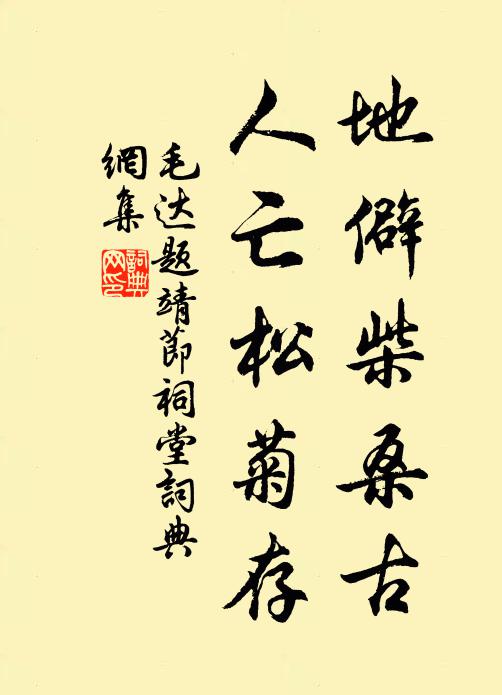 地僻柴桑古
人亡松菊存
毛达题靖節祠堂詞典
網集
詞典網印